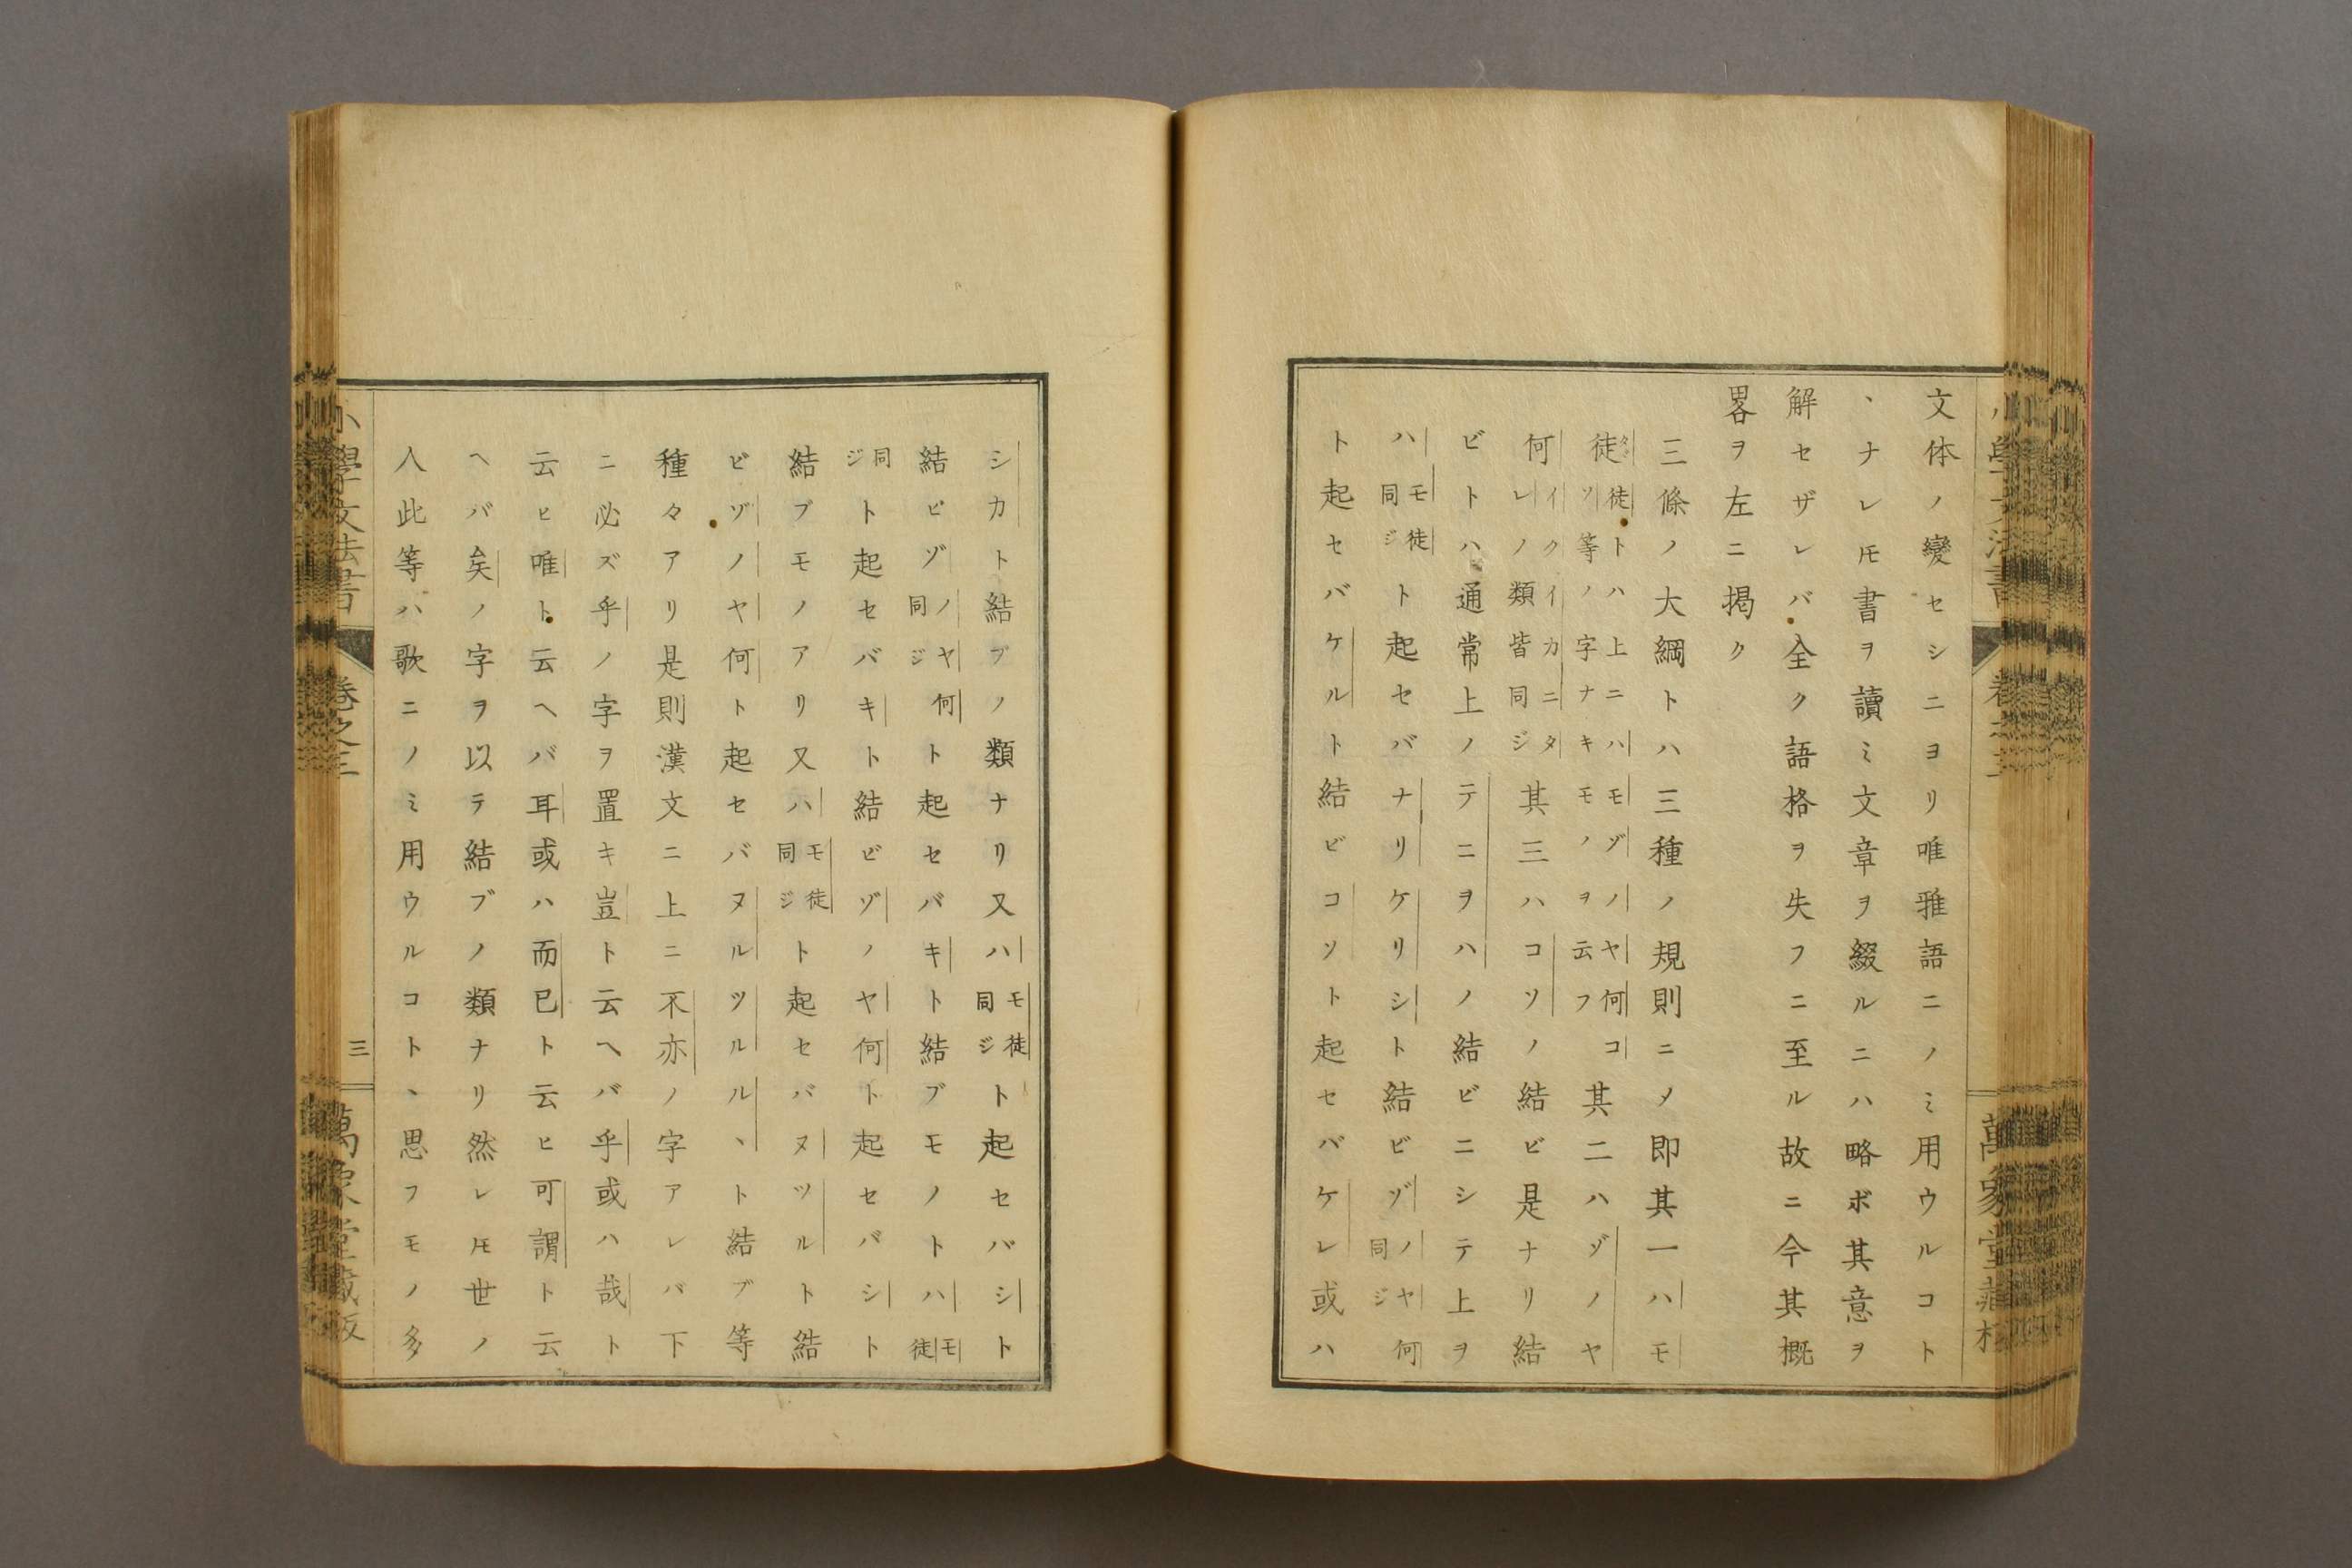 文体ノ變セシニヨリ唯雅語ニノミ用ウルコト
、ナレ𪜈書ヲ讀ミ文章ヲ綴ルニハ略ボ其意ヲ
解セザレバ全ク語格ヲ失フニ至ル故ニ今其概
畧ヲ左ニ掲ク
三條ノ大綱トハ三種ノ規則ニ〆即其一ハモ
徒タヾ徒トハ上ニハモゾノヤ何コソ等ノ字ナキモノヲ云フ其二ハゾノヤ
何イクイカニタレノ類皆同ジ其三ハコソノ結ビ是ナリ結
ビトハ通常上ノテニヲハノ結ビニシテ上ヲ
ハモ徒同ジト起セバナリケリシト結ビゾノヤ同ジ何
ト起セバケルト結ビコソト起セバケレ或ハ
シカト結ブノ類ナリ又ハモ徒同ジト起セバシト
結ビゾノヤ何同ジト起セバキト結ブモノトハモ徒
同ジト起セバキト結ビゾノヤ何ト起セバシト
結ブモノアリ又ハモ徒同ジト起セバヌツルト結
ビゾノヤ何ト起セバヌルツルル、ト結ブ等
種々アリ是則漢文ニ上ニ不亦ノ字アレバ下
ニ必ズ乎ノ字ヲ置キ豈ト云ヘバ乎或ハ哉ト
云ヒ唯ト云ヘバ耳或ハ而已ト云ヒ可謂ト云
ヘバ矣ノ字ヲ以テ結ブノ類ナリ然レ𪜈世ノ
人此等ハ歌ニノミ用ウルコト、思フモノ多
小學文法書
卷之三
三
萬象堂藏版